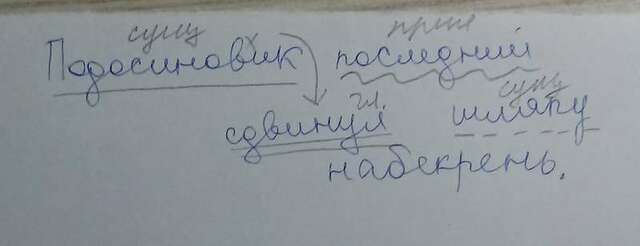 сущ прил
Подосиновик последний
гл. сущ
сдвинул шляпу
набекрень.